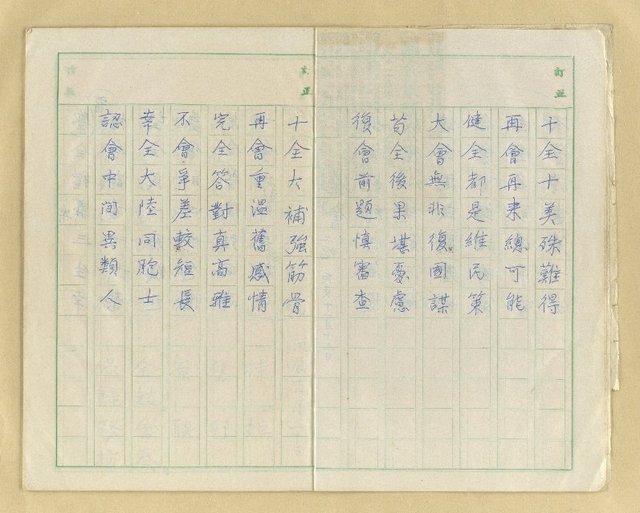 訂正
十全十美殊難得
再會再來總可能
健全都是維民策
大會無非復國謀
苟全後果堪憂慮
後會前題慎審查
訂正
十全大補強筋骨
再會重溫舊感情
完全答對真高雅
不會爭差較短長
幸全大陸同胞士
認會中間異類人